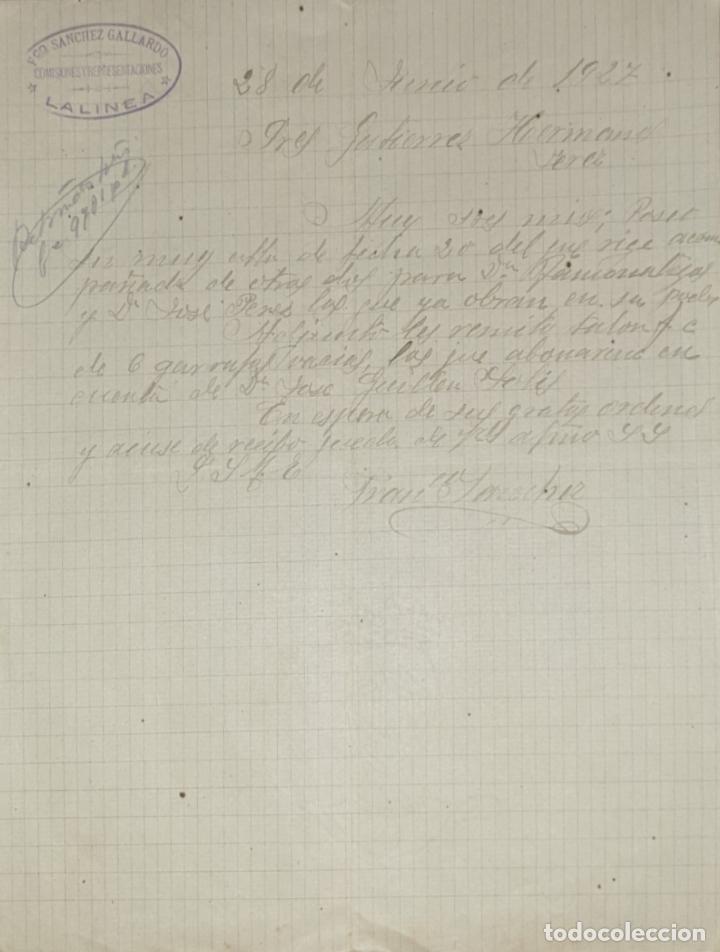 FCO. SANCHEZ GALLARDO
COMISIONES Y REPRESENTACIONES
LA LINEA
28 de Junio de 1927
Sres Gutierrez Hermanos
Jerez
Muy Sres mios; Poseo
su muy atta de fecha 20 del que rige acom
pañada de otras dos para Dn
y Dn José Peres las que ya obran en su poder
Adjunto les remito talon f. c
de 6 garrafas vacias, las que abonaran en
cuenta de Dn Jose Guillen Solis
En espera de sus gratas ordenes
y acuse de recibo queda de Vds afmo SS
Q S M E
Franco Sanchez
todocoleccion